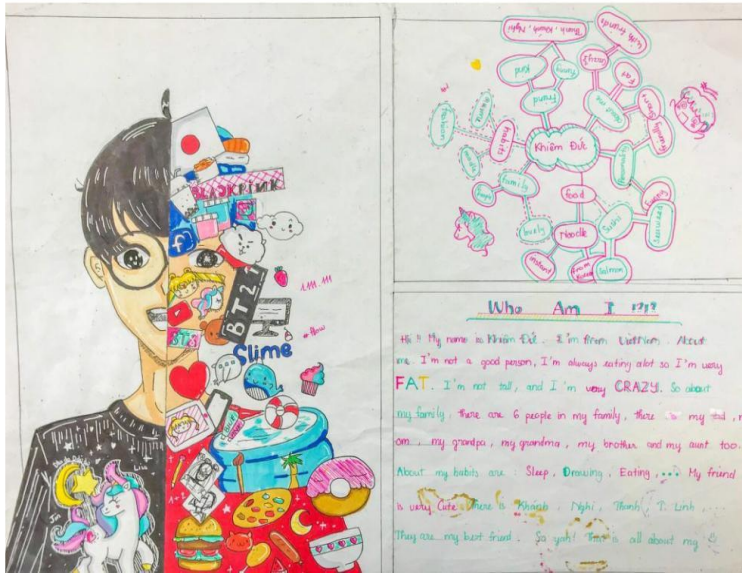 BLACKPINK
f
BT21
1.111.111
#Bow
Slime
BTS
Thanh, Khánh, Nghi
with friends
crazy
Fat
Kind
Funny
Friend
about me
Smart
family
anime
Fashion
habits
Khiêm Đức
family
food
Sushi
lovely
Noodle
instant
from Korea
salmon
Who Am I !?!?
Hi !! My name is Khiêm Đức. I'm from Vietnam. About
me. I'm not a good person, I'm always eating alot so I'm very
FAT. I'm not tall, and I'm very CRAZY. So about
my family, there are 6 people in my family, there is my dad, m
om, my grandpa, my grandma, my brother and my aunt too.
About my habits are : Sleep, Drawing, Eating, ... My friend
is very Cute there is Khánh, Nghi, Thanh, T. Linh
They are my best friend. So yah! This is all about my